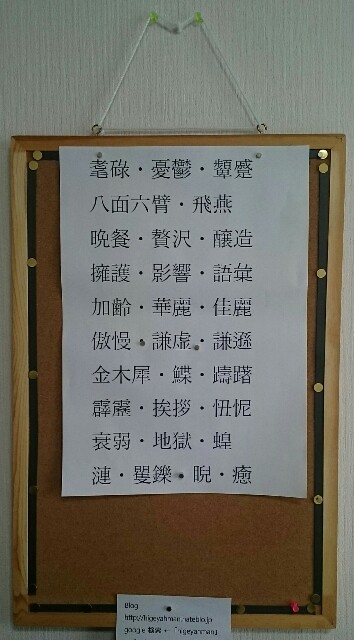 耄碌・憂鬱・顰蹙
八面六臂・飛燕
晩餐・贅沢・醸造
擁護・影響・語彙
加齢・華麗・佳麗
傲慢・謙虚・謙遜
金木犀・鰈・躊躇
霹靂・挨拶・忸怩
衰弱・地獄・蝗
漣・矍鑠・睨・癒
Blog
http://higeyahman.hateblo.jp
google 検索→「higeyahman」